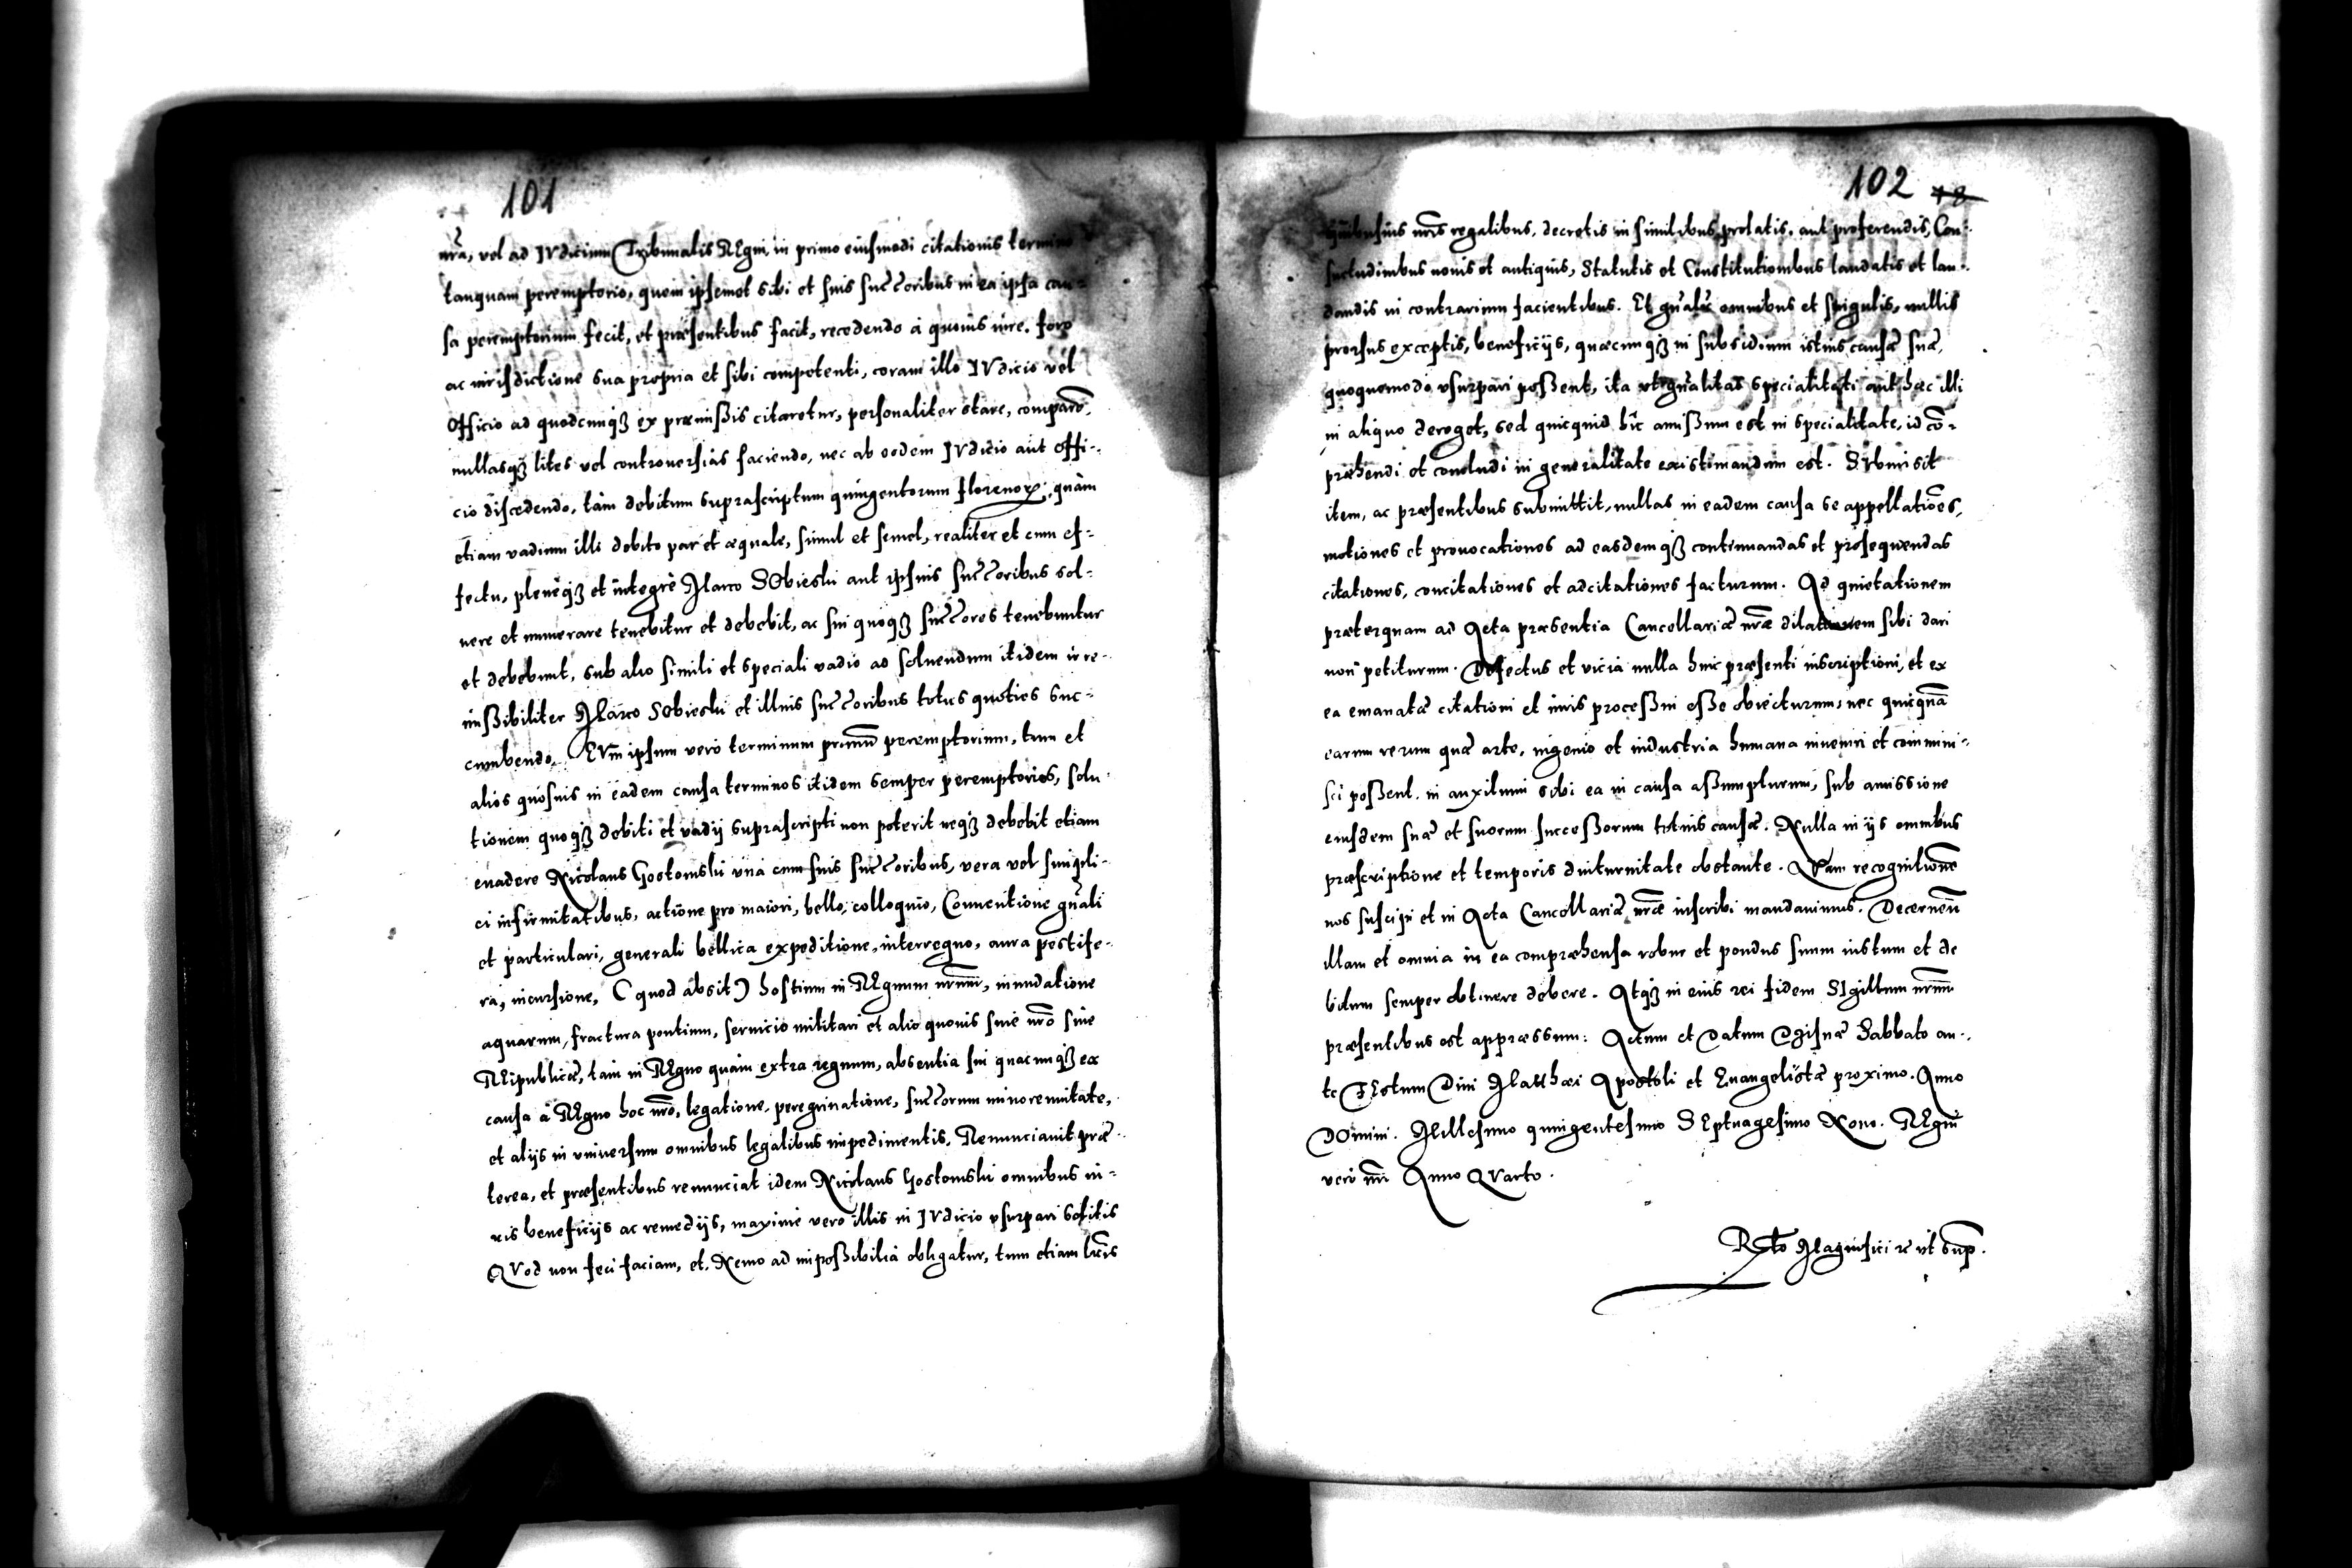 101
nr̃a, vel ad IVdicium Tribunalis REgni, in primo eiusmodi citationis termino
tanquam peremptorio, quem ipsemet sibi et suis succ̃oribus in ea ipsa cau-
sa peremptorium fecit, et præsentibus facit, recedendo à quouis iure, foro
ac iurisdictione sua propria et sibi competenti, coram illo IVdicio vel
Officio ad quodcunqꝫ ex præmißis citaretur, personaliter stare, comparẽ,
nullasqꝫ lites vel controuersias faciendo, nec ab eodem IVdicio aut offi-
cio discedendo, tàm debitum suprascriptum quingentorum florenoꝝ, quàm
etiam vadium illi debito par et æquale, simul et semel, realiter et cum ef-
fectu, plenèqꝫ et integrè Marco SObieski aut ipsius succ̃oribus sol-
uere et numerare tenebitur et debebit, ac sui quoqꝫ succ̃ores tenebuntur
et debebunt, sub alio simili et speciali vadio ad soluendum itidem irre-
mißibiliter Marco SObieski et illius succ̃oribus toties quoties suc-
cumbendo. EVm ipsum verò terminum primũ peremptorium, tum et
alios quosuis in eadem causa terminos itidem semper peremptorios, solu-
tionem quoqꝫ debiti et vadij suprascripti non poterit neqꝫ debebit etiam
euadere Nicolaus Gostomski vnà cum suis succ̃oribus, vera vel simpli-
ci infirmitatibus, actione pro maiori, bello, colloquio, Conuentione gñali
et particulari, generali bellica expeditione, interregno, aura pestife-
ra, incursione, (quod absit) hostium in REgnum nr̃um, inundatione
aquarum, fractura pontium, seruicio militari et alio quouis siue nr̃o siue
REipublicæ, tàm in REgno quàm extra regnum, absentia sui quacunqꝫ ex
causa à REgno hoc nr̃o, legatione, peregrinatione, succ̃orum minorennitate,
et alijs in vniuersum omnibus legalibus impedimentis. Renunciauit præ-
terea, et præsentibus renunciat idem Nicolaus Gostomski omnibus iu-
ris beneficijs ac remedijs, maximè vero illis in IVdicio vsurpari solitis
QVod non feci faciam, et, Nemo ad impoßibilia obligatur, tum etiam lr̃is
102 48
quibusuis nr̃is regalibus, decretis in similibus prolatis, aut proferendis, Con-
suetudinibus nouis et antiquis, Statutis et Constitutionibus laudatis et lau-
dandis in contrarium facientibus. Et gñalr̃ omnibus et singulis, nullis
prorsus exceptis, beneficijs, quæcunqꝫ in subsidium istius causæ suæ,
quoquomodo vsurpari poßent, ita vt gñalitas specialitati aut hæc illi
in aliquo deroget, sed quicquid hîc amißum est in specialitate, id cõ-
præhendi et concludi in generalitate existimandum est. SVbmisit
item, ac præsentibus submittit, nullas in eadem causa se appellatiões,
motiones et prouocationes ad easdemqꝫ continuandas et prosequendas
citationes, concitationes et adcitationes facturum. Ad quietationem
præterquam ad Acta præsentia Cancellariæ nr̃æ dilationem sibi dari
non petiturum. Defectus et vicia nulla huic præsenti inscriptioni, et ex
ea emanatæ citationi et iuris proceßui eße obiecturum, nec quicquã
earum rerum quæ arte, ingenio et industria humana inueniri et commini-
sci poßent, in auxilium sibi ea in causa aßumpturum, sub amissione
eiusdem suæ et suorum succeßorum totius causæ. Nulla in ijs omnibus
præscriptione et temporis diuturnitate obstante. Quam recognitionẽ
nos suscipi et in Acta Cancellariæ nr̃æ inscribi mandauimus. Decernen̄
illam et omnia in ea compræhensa robur et pondus suum iustum et de
bitum semper obtinere debere. Atqꝫ in eius rei fidem SIgillum nr̃um
præsentibus est appræssum: Actum et Datum Grisnæ Sabbato an-
te FEstum Diui Matthæi Apostoli et Euangelistæ proximo. Anno
DOmini. Millesimo quingentesimo SEptuagesimo Nono. REgni
verò nr̃i Anno QVarto.
Rłto Magnifici ꝛc vt sup̃.